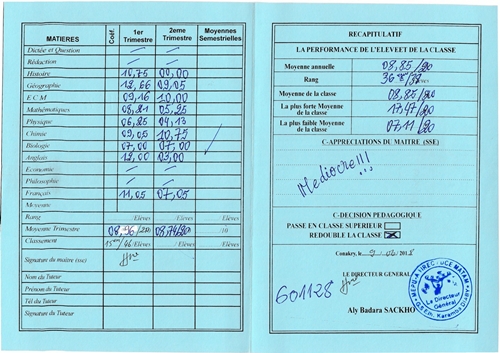 MATIERES Coéf. 1er Trimestre 2eme Trimestre Moyennes Semestrielles
Dictée et Question
Rédaction
Histoire 10,75 00,00
Géographie 12,66 09,05
E C M 09,16 10,00
Mathématiques 08,21 05,25
Physique 06,25 04,13
Chimie 09,05 10,75
Biologie 07,00 07,00
Anglais 12,00 03,00
Economie
Philosophie
Français 11,05 07,05
Moyenne
Rang /Elèves /Elèves /Elèves
Moyenne Trimestre 08,96/20 08,74/20 /10
Classement /46/Elèves /Elèves /Elèves
Signature du maitre (sse)
Nom du Tuteur
Prénom du Tuteur
Tél du Tuteur
Signature du Tuteur
RECAPITULATIF
LA PERFORMANCE DE L'ELEVEET DE LA CLASSE
Moyenne annuelle 08,85/20
Rang
Moyenne de la classe 08,85/20
La plus forte Moyenne de la classe 17,47/20
La plus faible Moyenne de la classe 07,11/20
C-APPRECIATIONS DU MAITRE (SSE)
Mediocre!!!
C-DECISION PEDAGOGIQUE
PASSE EN CLASSE SUPERIEUR
REDOUBLE LA CLASSE
Conakry, le
LE DIRECTEUR GENERAL
601128
Le Directeur
Général
Aly Badara SACKHO